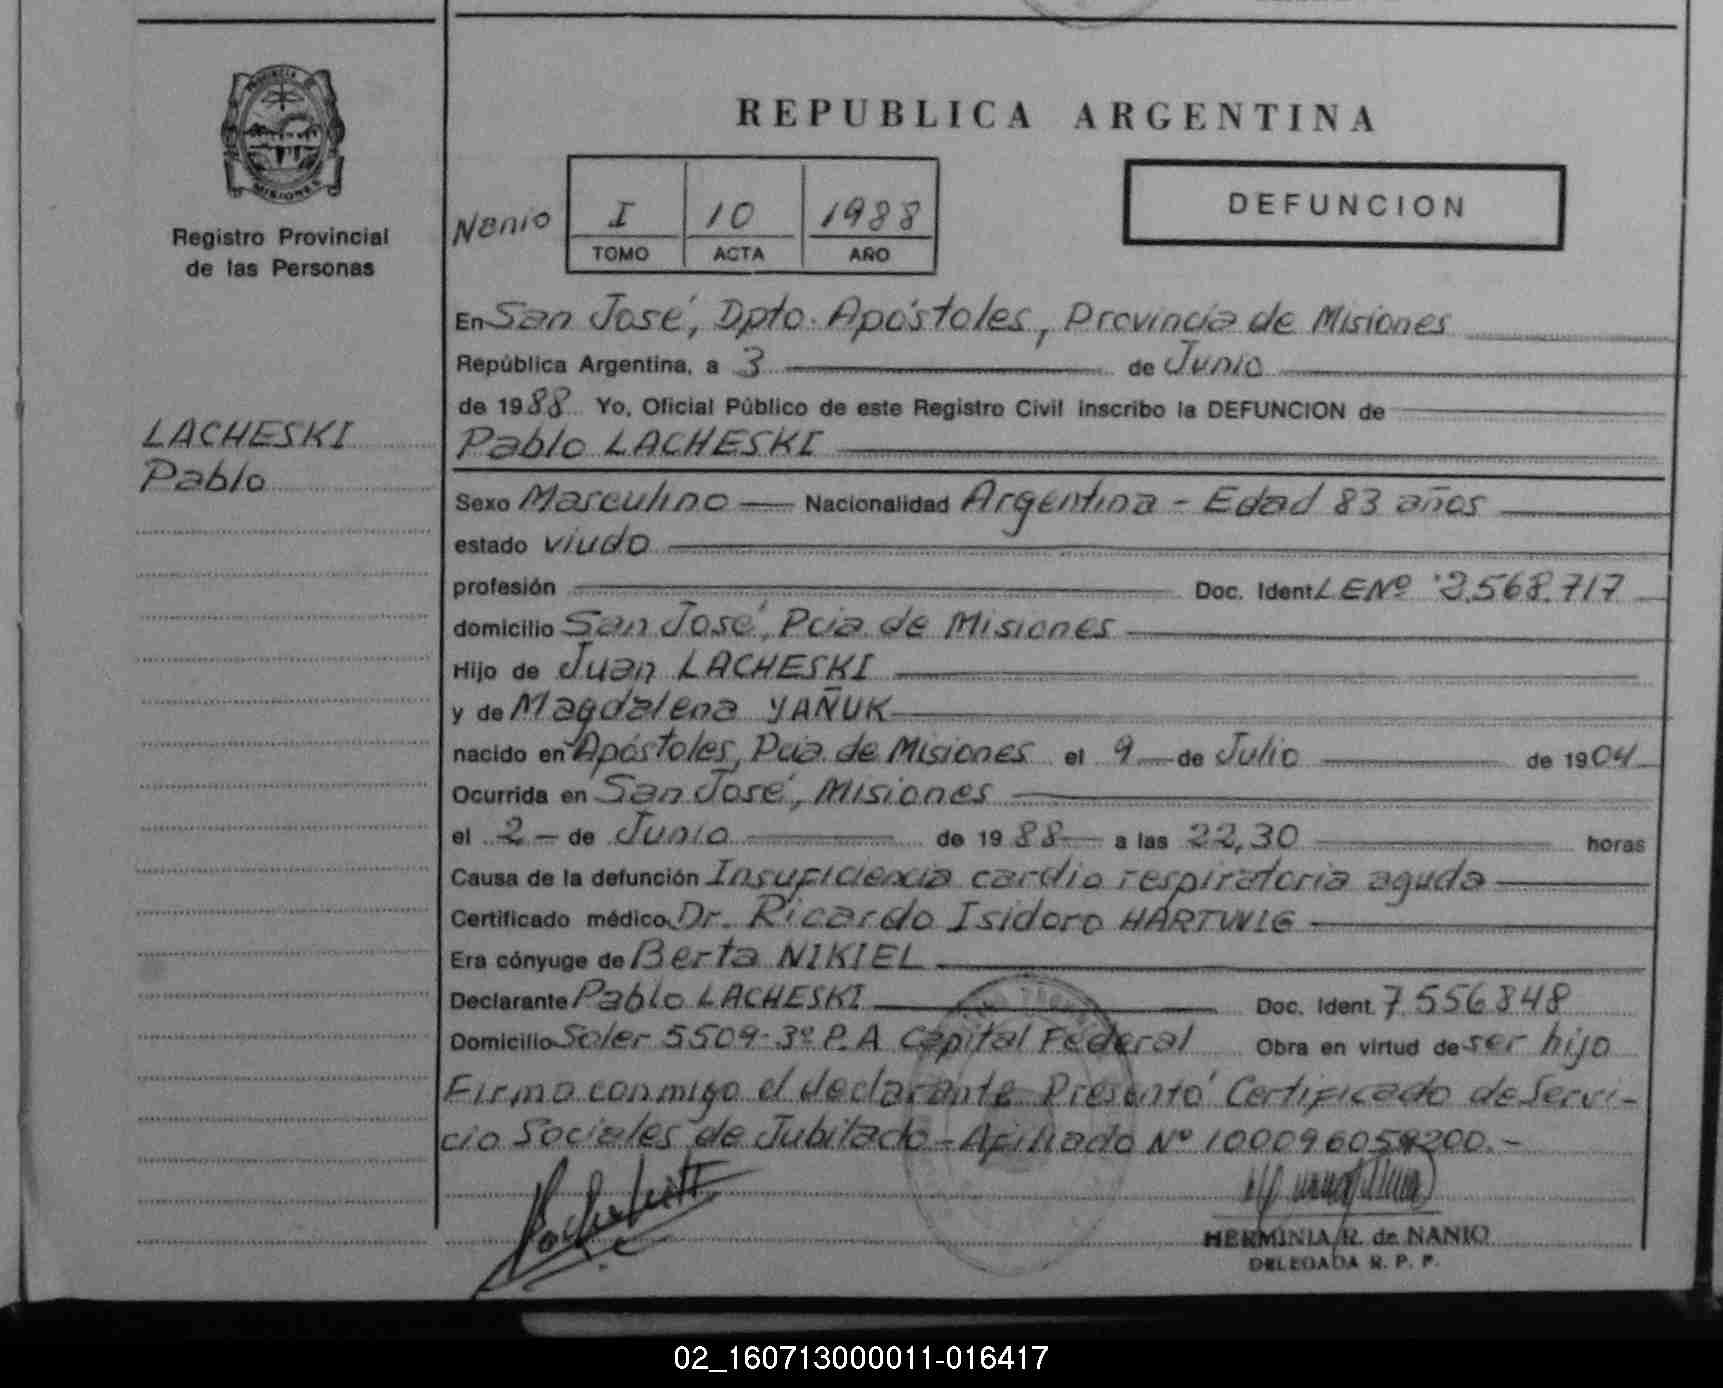 PROVINCIA DE
MISIONES
Registro Provincial
de las Personas
LACHESKI
Pablo
REPUBLICA ARGENTINA
Nanio
I 10 1988
TOMO ACTA AÑO
DEFUNCION
En San José, Dpto. Apóstoles, Provincia de Misiones
República Argentina, a 3 de Junio
de 1988 Yo, Oficial Público de este Registro Civil inscribo la DEFUNCION de
Pablo LACHESKI
Sexo Masculino Nacionalidad Argentina - Edad 83 años
estado viudo
profesión Doc. Ident LE Nº 3.568.717
domicilio San José, Pcia. de Misiones
Hijo de Juan LACHESKI
y de Magdalena YAÑUK
nacido en Apóstoles, Pcia. de Misiones el 9 de Julio de 1904
Ocurrida en San José, Misiones
el 2 de Junio de 1988 a las 22,30 horas
Causa de la defunción Insuficiencia cardio respiratoria aguda
Certificado médico Dr. Ricardo Isidoro HARTWIG
Era cónyuge de Berta NIKIEL
Declarante Pablo LACHESKI Doc. Ident. 7.556848
Domicilio Soler 5509-3º P.A Capital Federal Obra en virtud de ser hijo
Firma conmigo el declarante Presentó Certificado de Servi-
cio Sociales de Jubilado - Afiliado Nº
HERMINIA R. de NANIO
DELEGADA R. P. P.
02_160713000011-016417